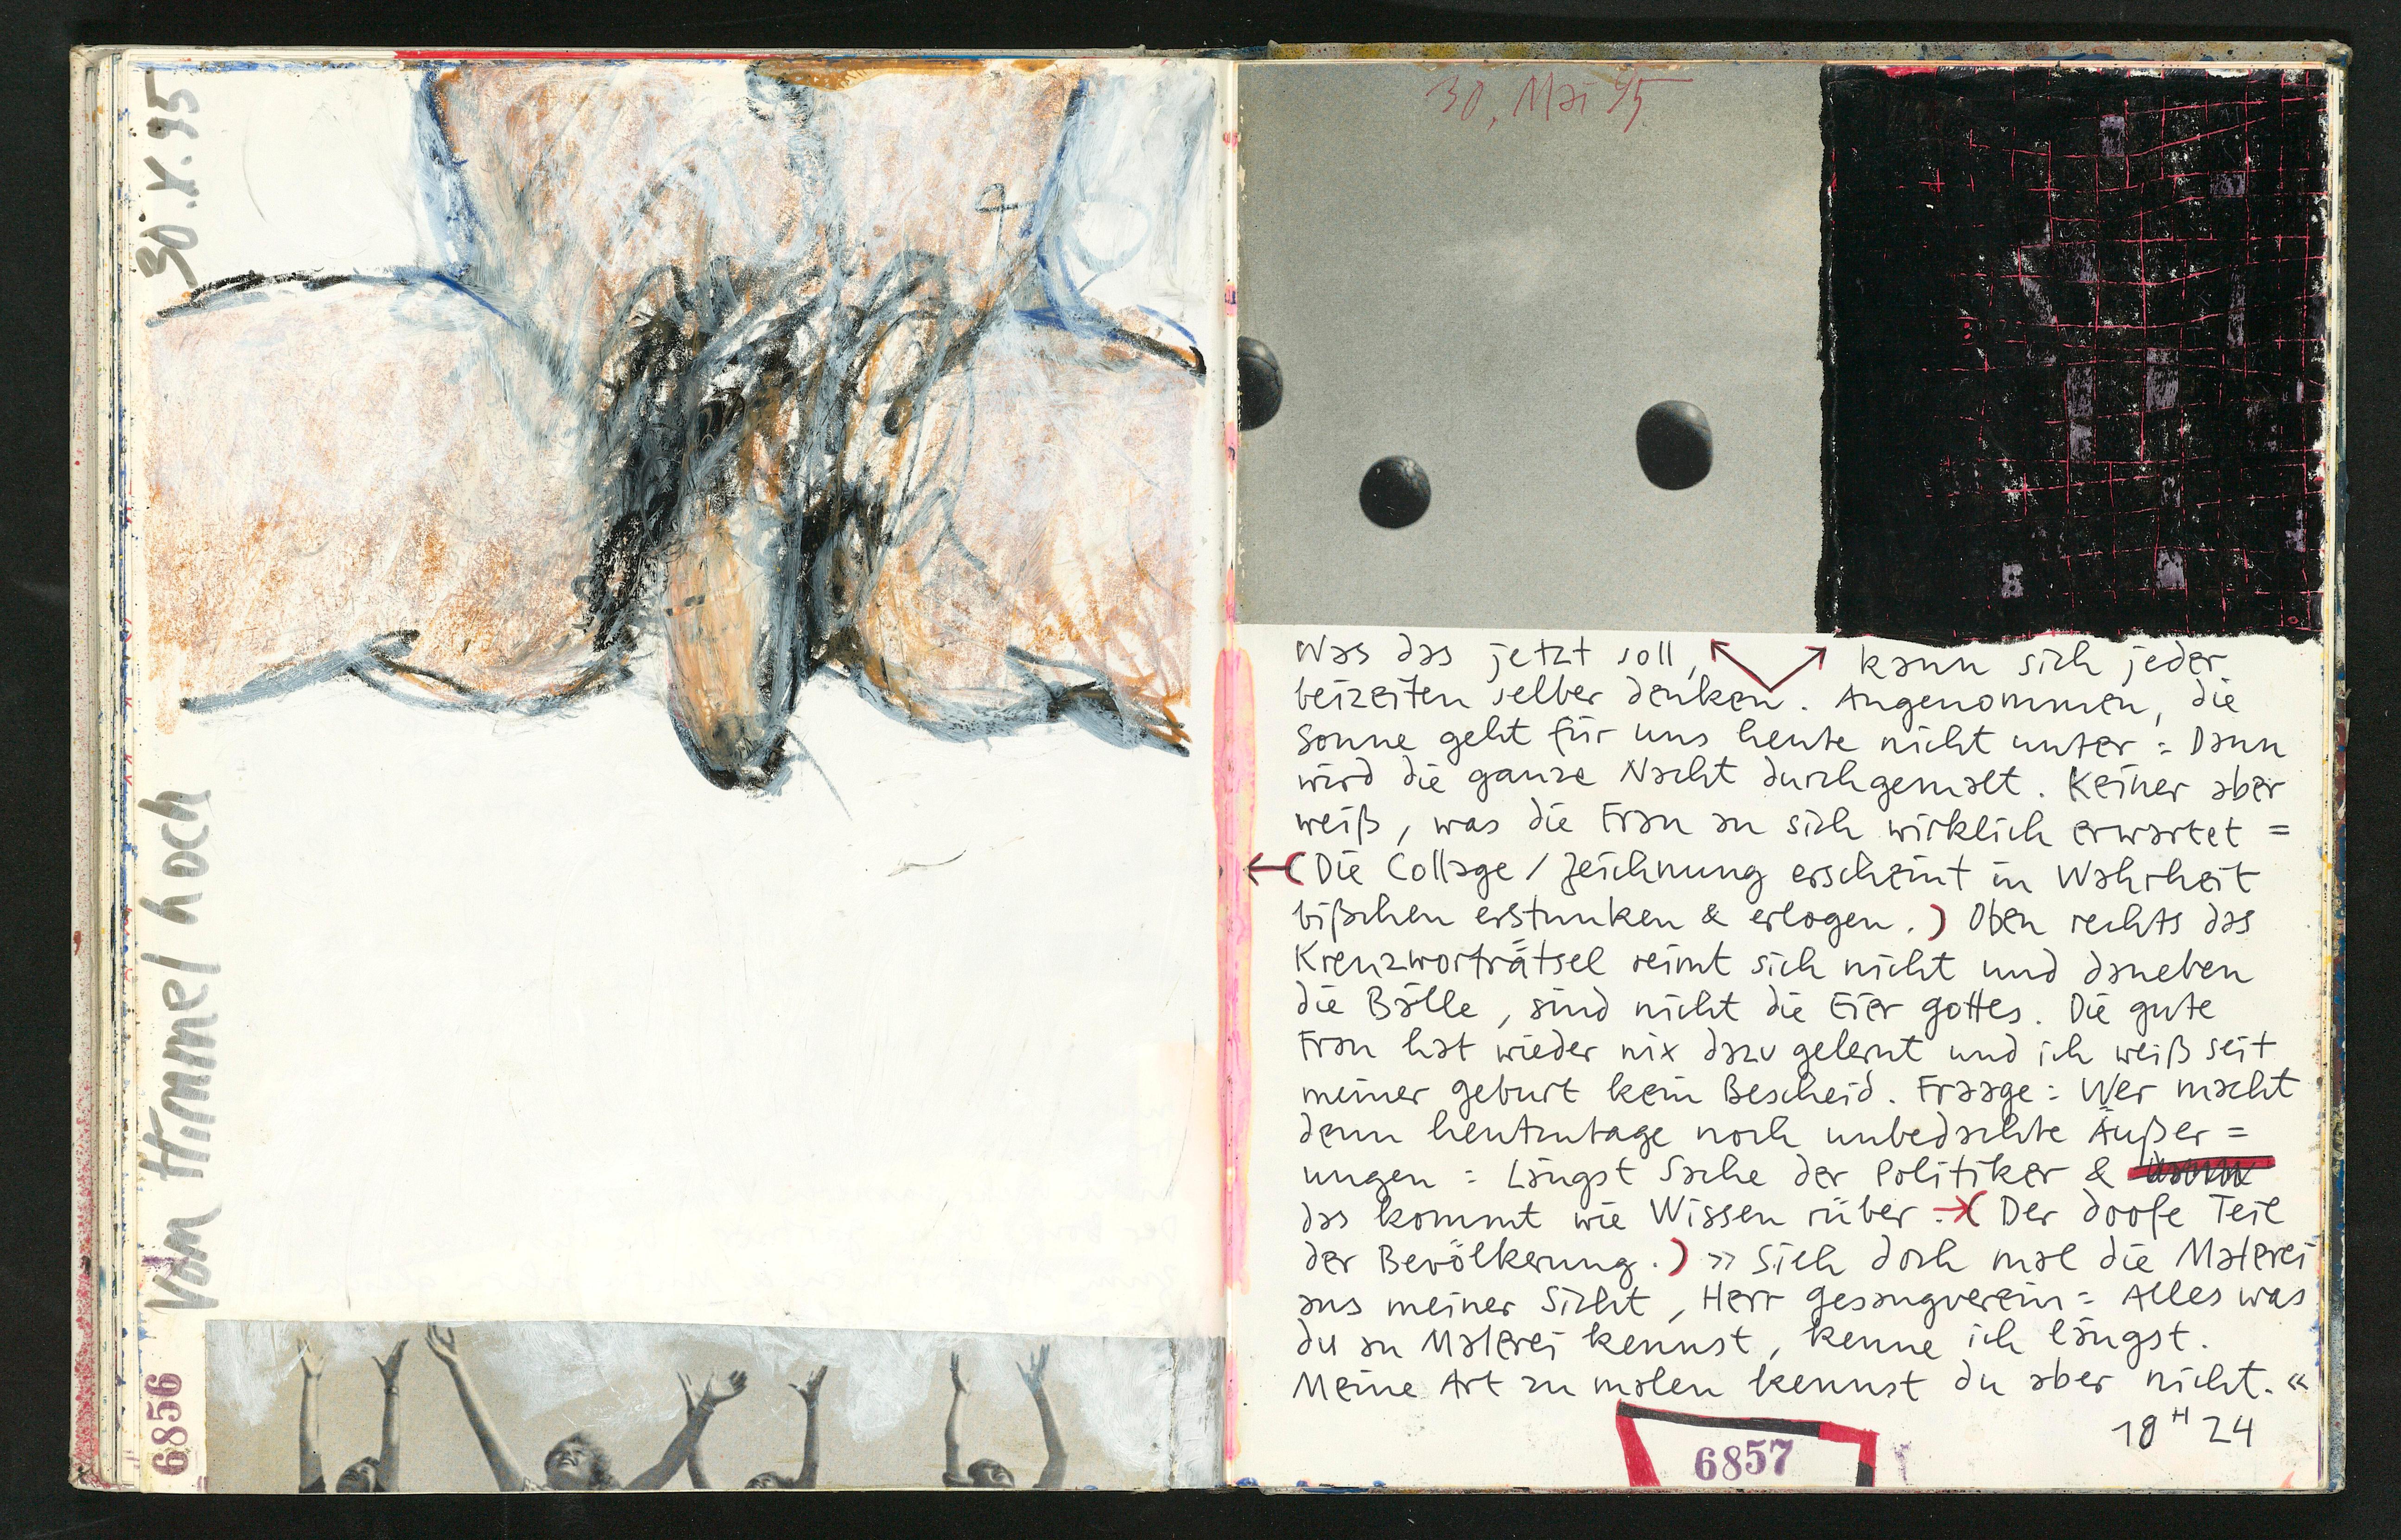 30.V.95
Vom Himmel hoch
6856
30. Mai 95
Was das jetzt soll, kann sich jeder
beizeiten selber denken. Angenommen, die
Sonne geht für uns heute nicht unter = Dann
wird die ganze Nacht durchgemalt. Keiner aber
weiß, was die Frau an sich wirklich erwartet =
(Die Collage / Zeichnung erscheint in Wahrheit
bißchen erstunken & erlogen.) Oben rechts das
Kreuzworträtsel reimt sich nicht und daneben
die Bälle, sind nicht die Eier gottes. Die gute
Frau hat wieder nix dazu gelernt und ich weiß seit
meiner geburt kein Bescheid. Fraage = Wer macht
denn heutzutage noch unbedachte Äußer=
ungen = Längst Sache der Politiker &
das kommt wie Wissen rüber → (Der doofe Teil
der Bevölkerung.) » Sieh doch mal die Malerei
aus meiner Sicht, Herr gesangverein = Alles was
du an Malerei kennst, kenne ich längst.
Meine Art zu malen kennst du aber nicht. «
18 H 24
6857